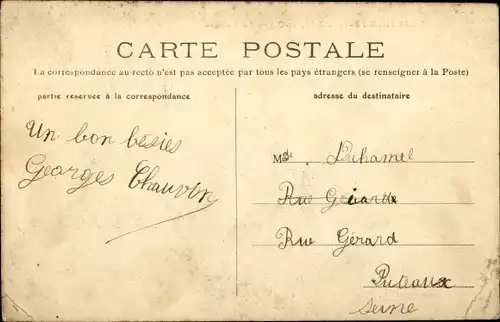 CARTE POSTALE
La correspondance au recto n'est pas acceptée par tous les pays étrangers (se renseigner à la Poste)
partie reservee à la correspondance
adresse du destinataire
Un bon bésies
Georges Chauvin
Mde. Duhamel
Rue Gérard
Rue Gérard
Puteaux
Seine